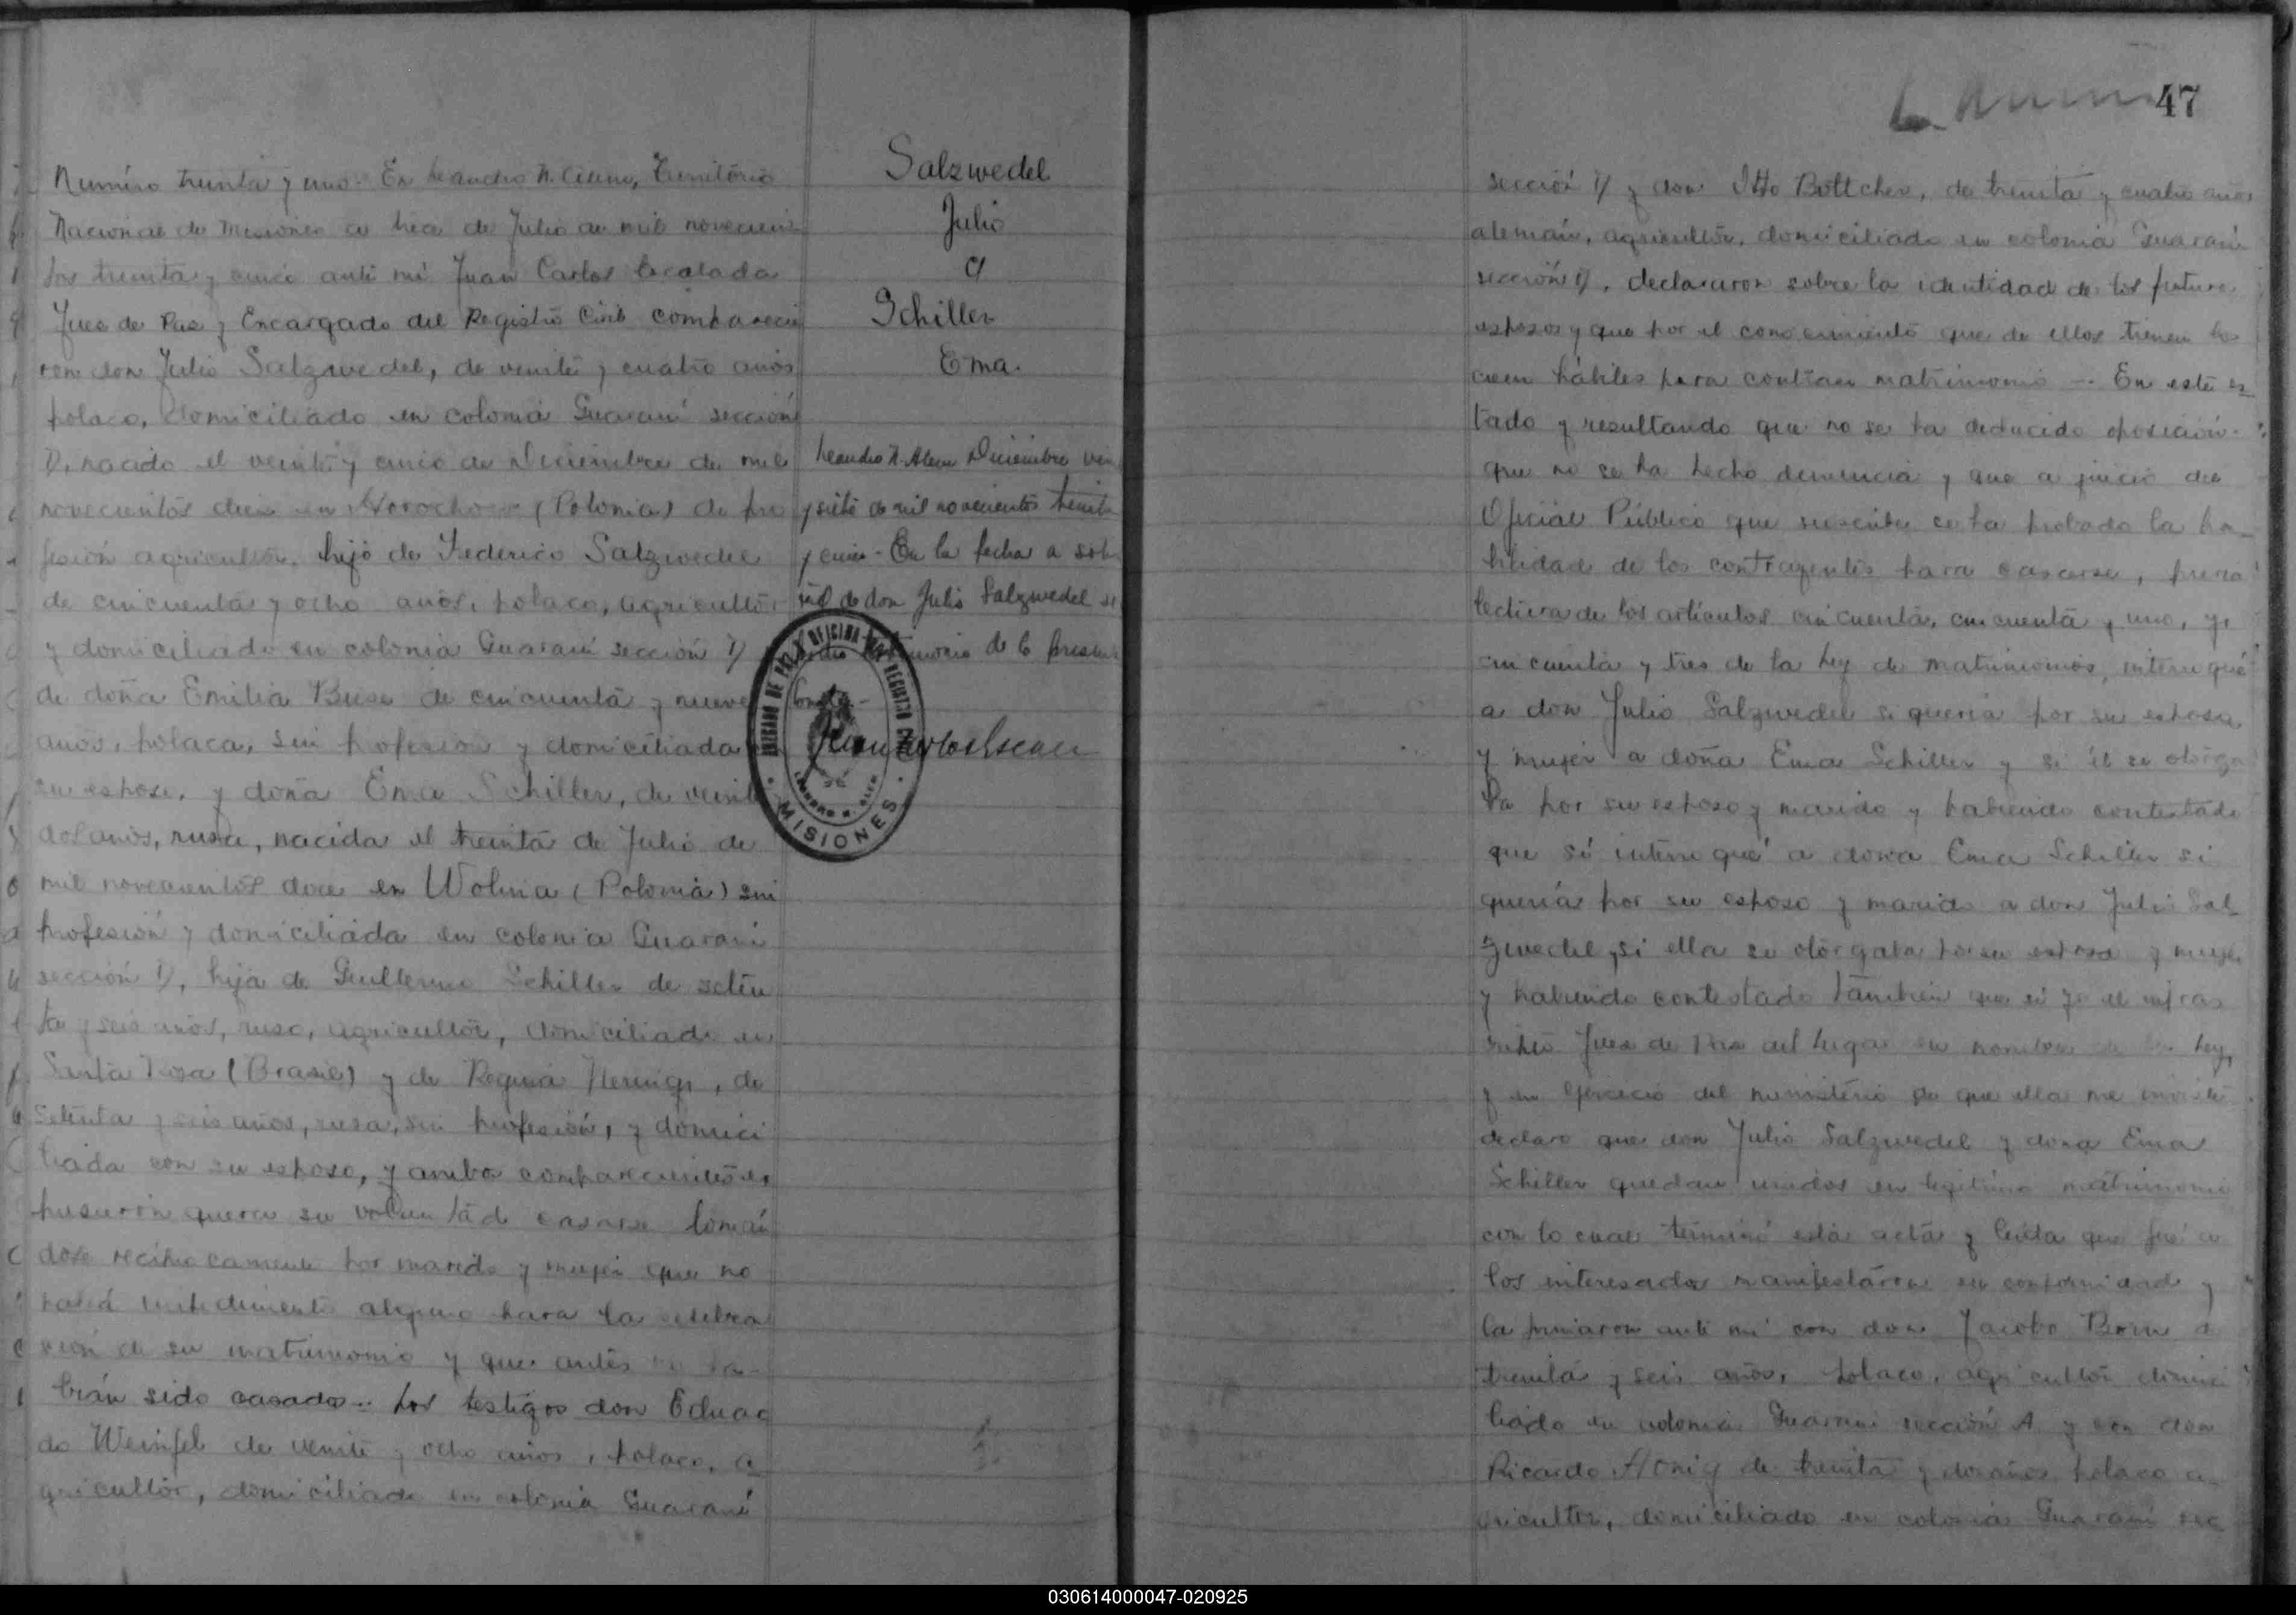 Número treinta y uno. En Leandro N. Alem, Territorio
Nacional de Misiones a tres de Julio de mil novecien
tos treinta y cinco ante mí Juan Carlos Escalada
Juez de Paz y Encargado del Registro Civil comparecie
ron don Julio Salzwedel, de veinte y cuatro años
polaco, domiciliado en colonia Guaraní sección
D, nacido el veinte y cinco de Diciembre de mil
novecientos diez en (Polonia) de pro
fesión agricultor, hijo de Federico Salzwedel
de cincuenta y ocho años, polaco, agricultor
y domiciliado en colonia Guaraní sección D y
de doña Emilia Buse de cincuenta y nueve
años, polaca, sin profesión y domiciliada
su esposo, y doña Ema Schiller, de veinte
dos años, rusa, nacida el treinta de Julio de
mil novecientos doce en Wolinia (Polonia) sin
profesión y domiciliada en colonia Guaraní
sección D, hija de Guillermo Schiller de seten
ta y seis años, ruso, agricultor, domiciliado en
Santa Rosa (Brasil) y de Regina, de
setenta y seis años, rusa, sin profesión, y domici
liada con su esposo, y ambos comparecientes ex
pusieron que era su voluntad casarse tomán
dose recíprocamente por marido y mujer que no
había impedimento alguno para la celebra
ción de su matrimonio y que antes no ha-
bían sido casados.- Los testigos don Eduar
do Weinfel de veinte y ocho años, polaco, a
gricultor, domiciliado en colonia Guaraní
Salzwedel
Julio
a
Schiller
Ema.
Leandro N. Alem Diciembre vein
y siete de mil novecientos treinta
y cinco - En la fecha a soli
cid de don Julio Salzwedel se
testimonio de la presen
JUZGADO DE PAZ Y OFICINA DEL REGISTRO CIVIL
LEANDRO N. ALEM
MISIONES
47
sección D y don Otto Bottcher, de treinta y cuatro años
alemán, agricultor, domiciliado en colonia Guaraní
sección D, declararon sobre la identidad de los futuros
esposos y que por el conocimiento que de ellos tienen los
creen hábiles para contraer matrimonio -- En este es
tado y resultando que no se ha deducido oposición
que no se ha hecho denuncia y que a juicio del
Oficial Público que suscribe esta probada la ha-
bilidad de los contrayentes para casarse, previa
lectura de los artículos cincuenta, cincuenta y uno, y
cincuenta y tres de la Ley de matrimonios, interrogué
a don Julio Salzwedel si quería por su esposa
y mujer a doña Ema Schiller y si él se otorga
ba por su esposo y marido y habiendo contestado
que sí interrogué a doña Ema Schiller si
quería por su esposo y marido a don Julio Sal
zwedel, si ella se otorgaba por su esposa y mujer
y habiendo contestado también que sí yo el infras
cripto Juez de Paz del lugar en nombre de la Ley,
y en ejercicio del ministerio de que ella me inviste
declaro que don Julio Salzwedel y dona Ema
Schiller quedan unidos en legítimo matrimonio
con lo cual terminó esta acta y leída que fué a
los interesados manifestaron su conformidad y
la firmaron ante mí con don Jacobo Born de
treinta y seis años, polaco, agricultor domici
liado en colonia Guaraní sección A y con don
Ricardo Honig de treinta y dos años, polaco a-
gricultor, domiciliado en colonia Guaraní sec
030614000047-020925